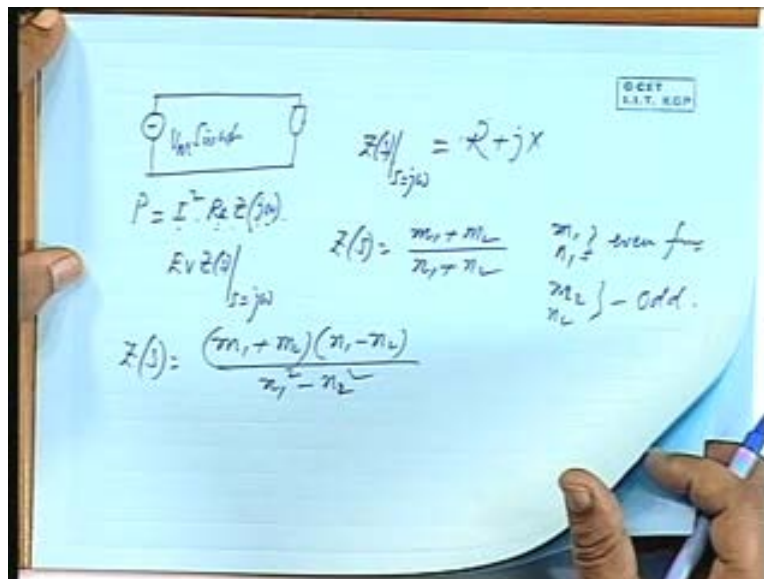 © CET
I.I.T. KGP
Vm Sin ωt
Z(s)|s=jω = R + jX
P = I² Re Z(jω).
Ev Z(s)|s=jω
Z(s) = (m₁ + m₂) / (n₁ + n₂)
m₁, n₁ } even fun
m₂ n₂ } - odd.
Z(s) = (m₁ + m₂)(n₁ - n₂) / (n₁² - n₂²)